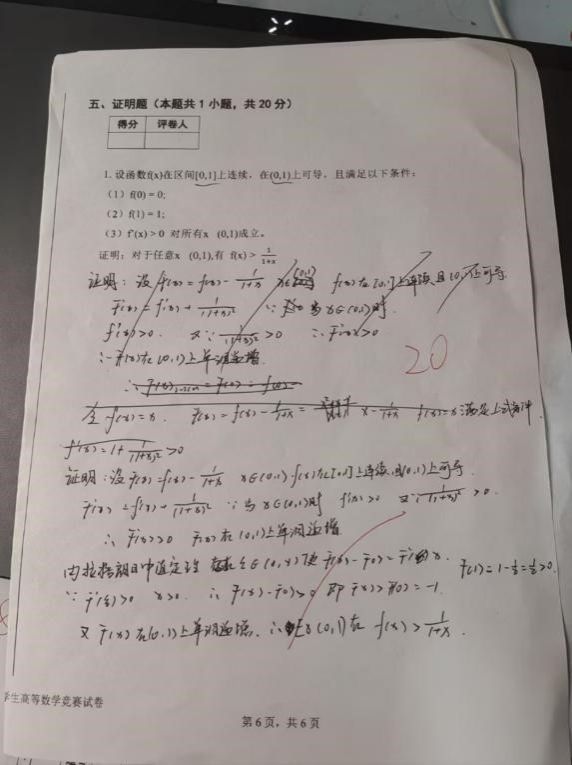 五、证明题（本题共1小题，共20分）
得分 评卷人
1. 设函数f(x)在区间[0,1]上连续，在(0,1)上可导，且满足以下条件：
（1）f(0) = 0;
（2）f(1) = 1;
（3）f'(x) > 0 对所有x (0,1)成立。
证明：对于任意x (0,1),有 f(x) > 1/(1+x)
证明：设 F(x) = f(x) - 1/(1+x) x∈(0,1) f(x)在[0,1]上连续且(0,1)上可导
F'(x) = f'(x) + 1/(1+x)² ∵ 当x∈(0,1)时
f'(x)>0. 又∵ 1/(1+x)² >0 ∴ F'(x)>0
∴ F(x)在(0,1)上单调递增
20
令 f(x)=x. F(x) = f(x) - 1/(1+x) = x - 1/(1+x) f(x)=x 满足上式条件
F'(x) = 1 + 1/(1+x)² >0
证明：设 F(x) = f(x) - 1/(1+x) x∈(0,1) f(x)在[0,1]上连续，且(0,1)上可导
F'(x) = f'(x) + 1/(1+x)² ∵ 当x∈(0,1)时 f'(x)>0 又∵ 1/(1+x)² >0.
∴ F'(x)>0 F(x)在(0,1)上单调递增
由拉格朗日中值定理 ξ∈(0,x) 使 F(x)-F(0)=F'(ξ)x. F(1)=1-½=½>0.
∵ F'(ξ)>0 x>0. ∴ F(x)-F(0)>0 即 F(x)>F(0)=-1.
又 F(x)在(0,1)上单调递增. ∴ x(0,1)在 f(x) > 1/(1+x).
学生高等数学竞赛试卷
第 6 页，共 6 页